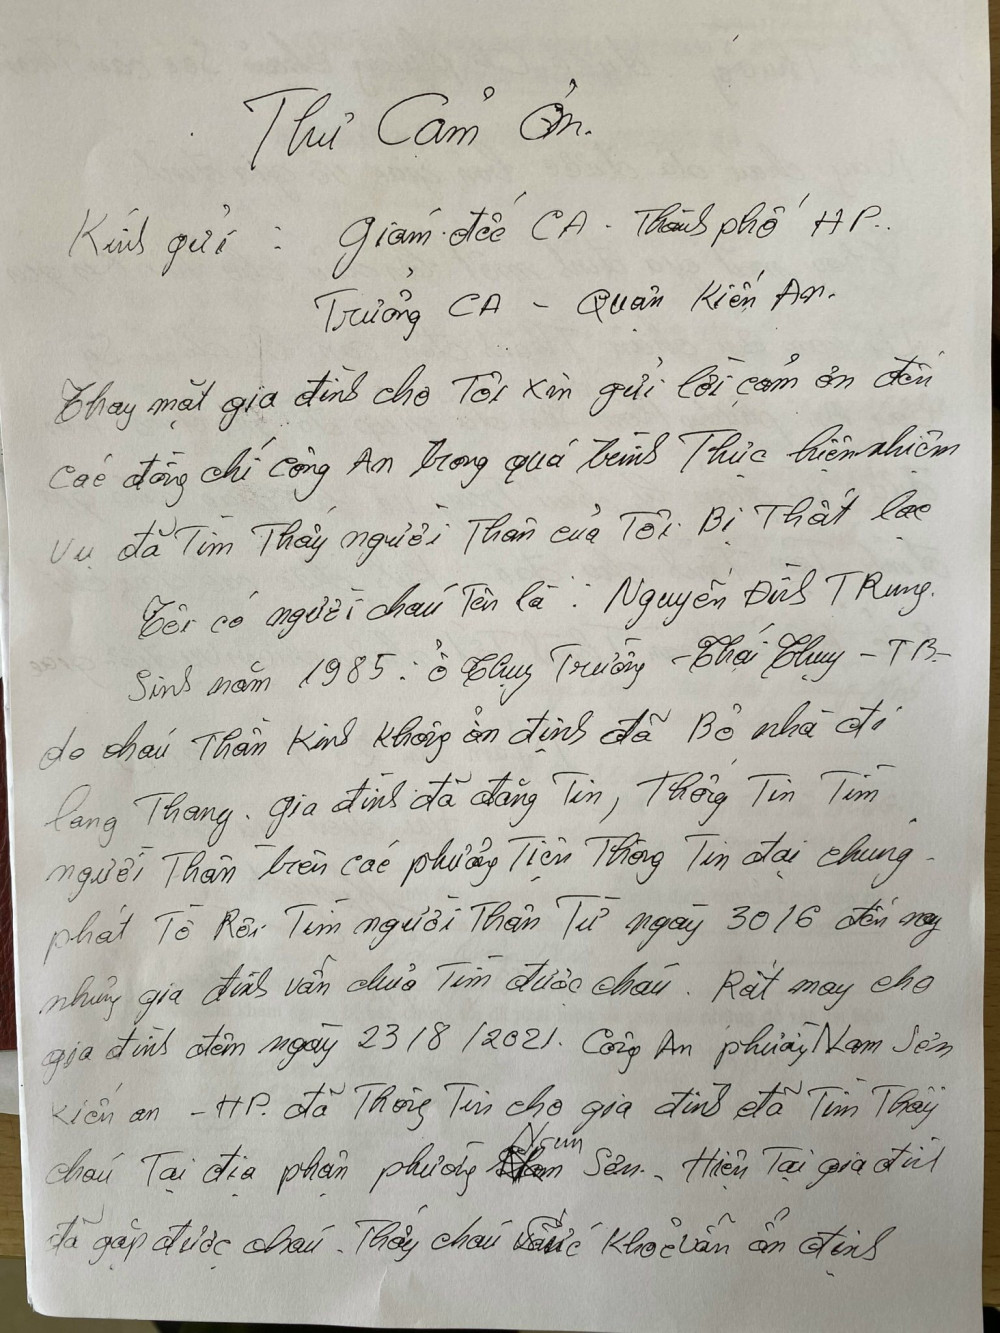 Thư Cảm Ơn.
Kính gửi : Giám đốc CA. Thành phố HP..
Trưởng CA - Quận Kiến An.
Thay mặt gia đình cho Tôi xin gửi lời cảm ơn đến
các đồng chí công An trong quá trình Thực hiện nhiệm
vụ đã Tìm Thấy người Thân của Tôi Bị Thất lạc
Tôi có người cháu Tên là : Nguyễn Đình TRung.
Sinh năm 1985. ở Thụy Trường - Thái Thụy - TB-
do cháu Thần Kinh không ổn định đã Bỏ nhà đi
lang Thang. gia đình đã đăng Tin, Thông Tin Tìm
người Thân trên các phương Tiện Thông Tin đại chúng.
phát Tờ Rơi Tìm người Thân Từ ngày 30/6 đến nay
nhưng gia đình vẫn chưa Tìm được cháu. Rất may cho
gia đình đêm ngày 23/8/2021. Công An phường Nam Sơn
Kiến an - HP. đã Thông Tin cho gia đình đã Tìm Thấy
cháu Tại địa phận phường Nam Sơn. Hiện Tại gia đình
đã gặp được cháu. Thấy cháu Khỏe vẫn ổn định